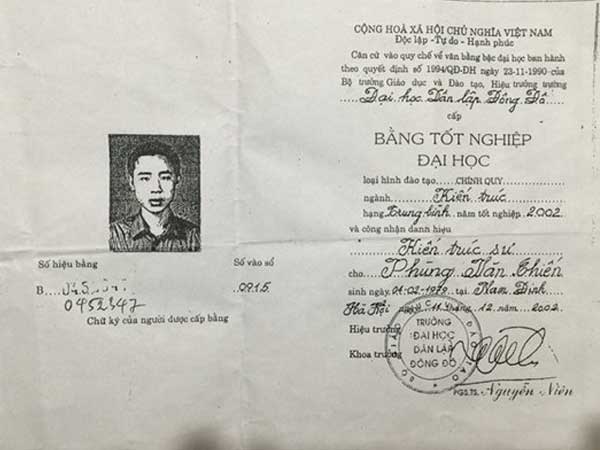 Số hiệu bằng
Số vào sổ
B
0915
0452347
Chữ ký của người được cấp bằng
CỘNG HOÀ XÃ HỘI CHỦ NGHĨA VIỆT NAM
Độc lập - Tự do - Hạnh phúc
Căn cứ vào quy chế về văn bằng bậc đại học ban hành
theo quyết định số 1994/QĐ-ĐH ngày 23-11-1990 của
Bộ trưởng Giáo dục và Đào tạo, Hiệu trưởng trường
Đại học Dân lập Đông Đô
cấp
BẰNG TỐT NGHIỆP
ĐẠI HỌC
loại hình đào tạo CHÍNH QUY
ngành Kiến trúc
hạng Trung bình năm tốt nghiệp 2002
và công nhận danh hiệu
Kiến trúc sư
cho Phùng Văn Thiến
sinh ngày 01-02-1979 tại Nam Định
Hà Nội ngày 11 tháng 12 năm 2002
Hiệu trưởng
Khoa trưởng
TRƯỜNG
ĐẠI HỌC
DÂN LẬP
ĐÔNG ĐÔ
PGS.TS. Nguyễn Niên